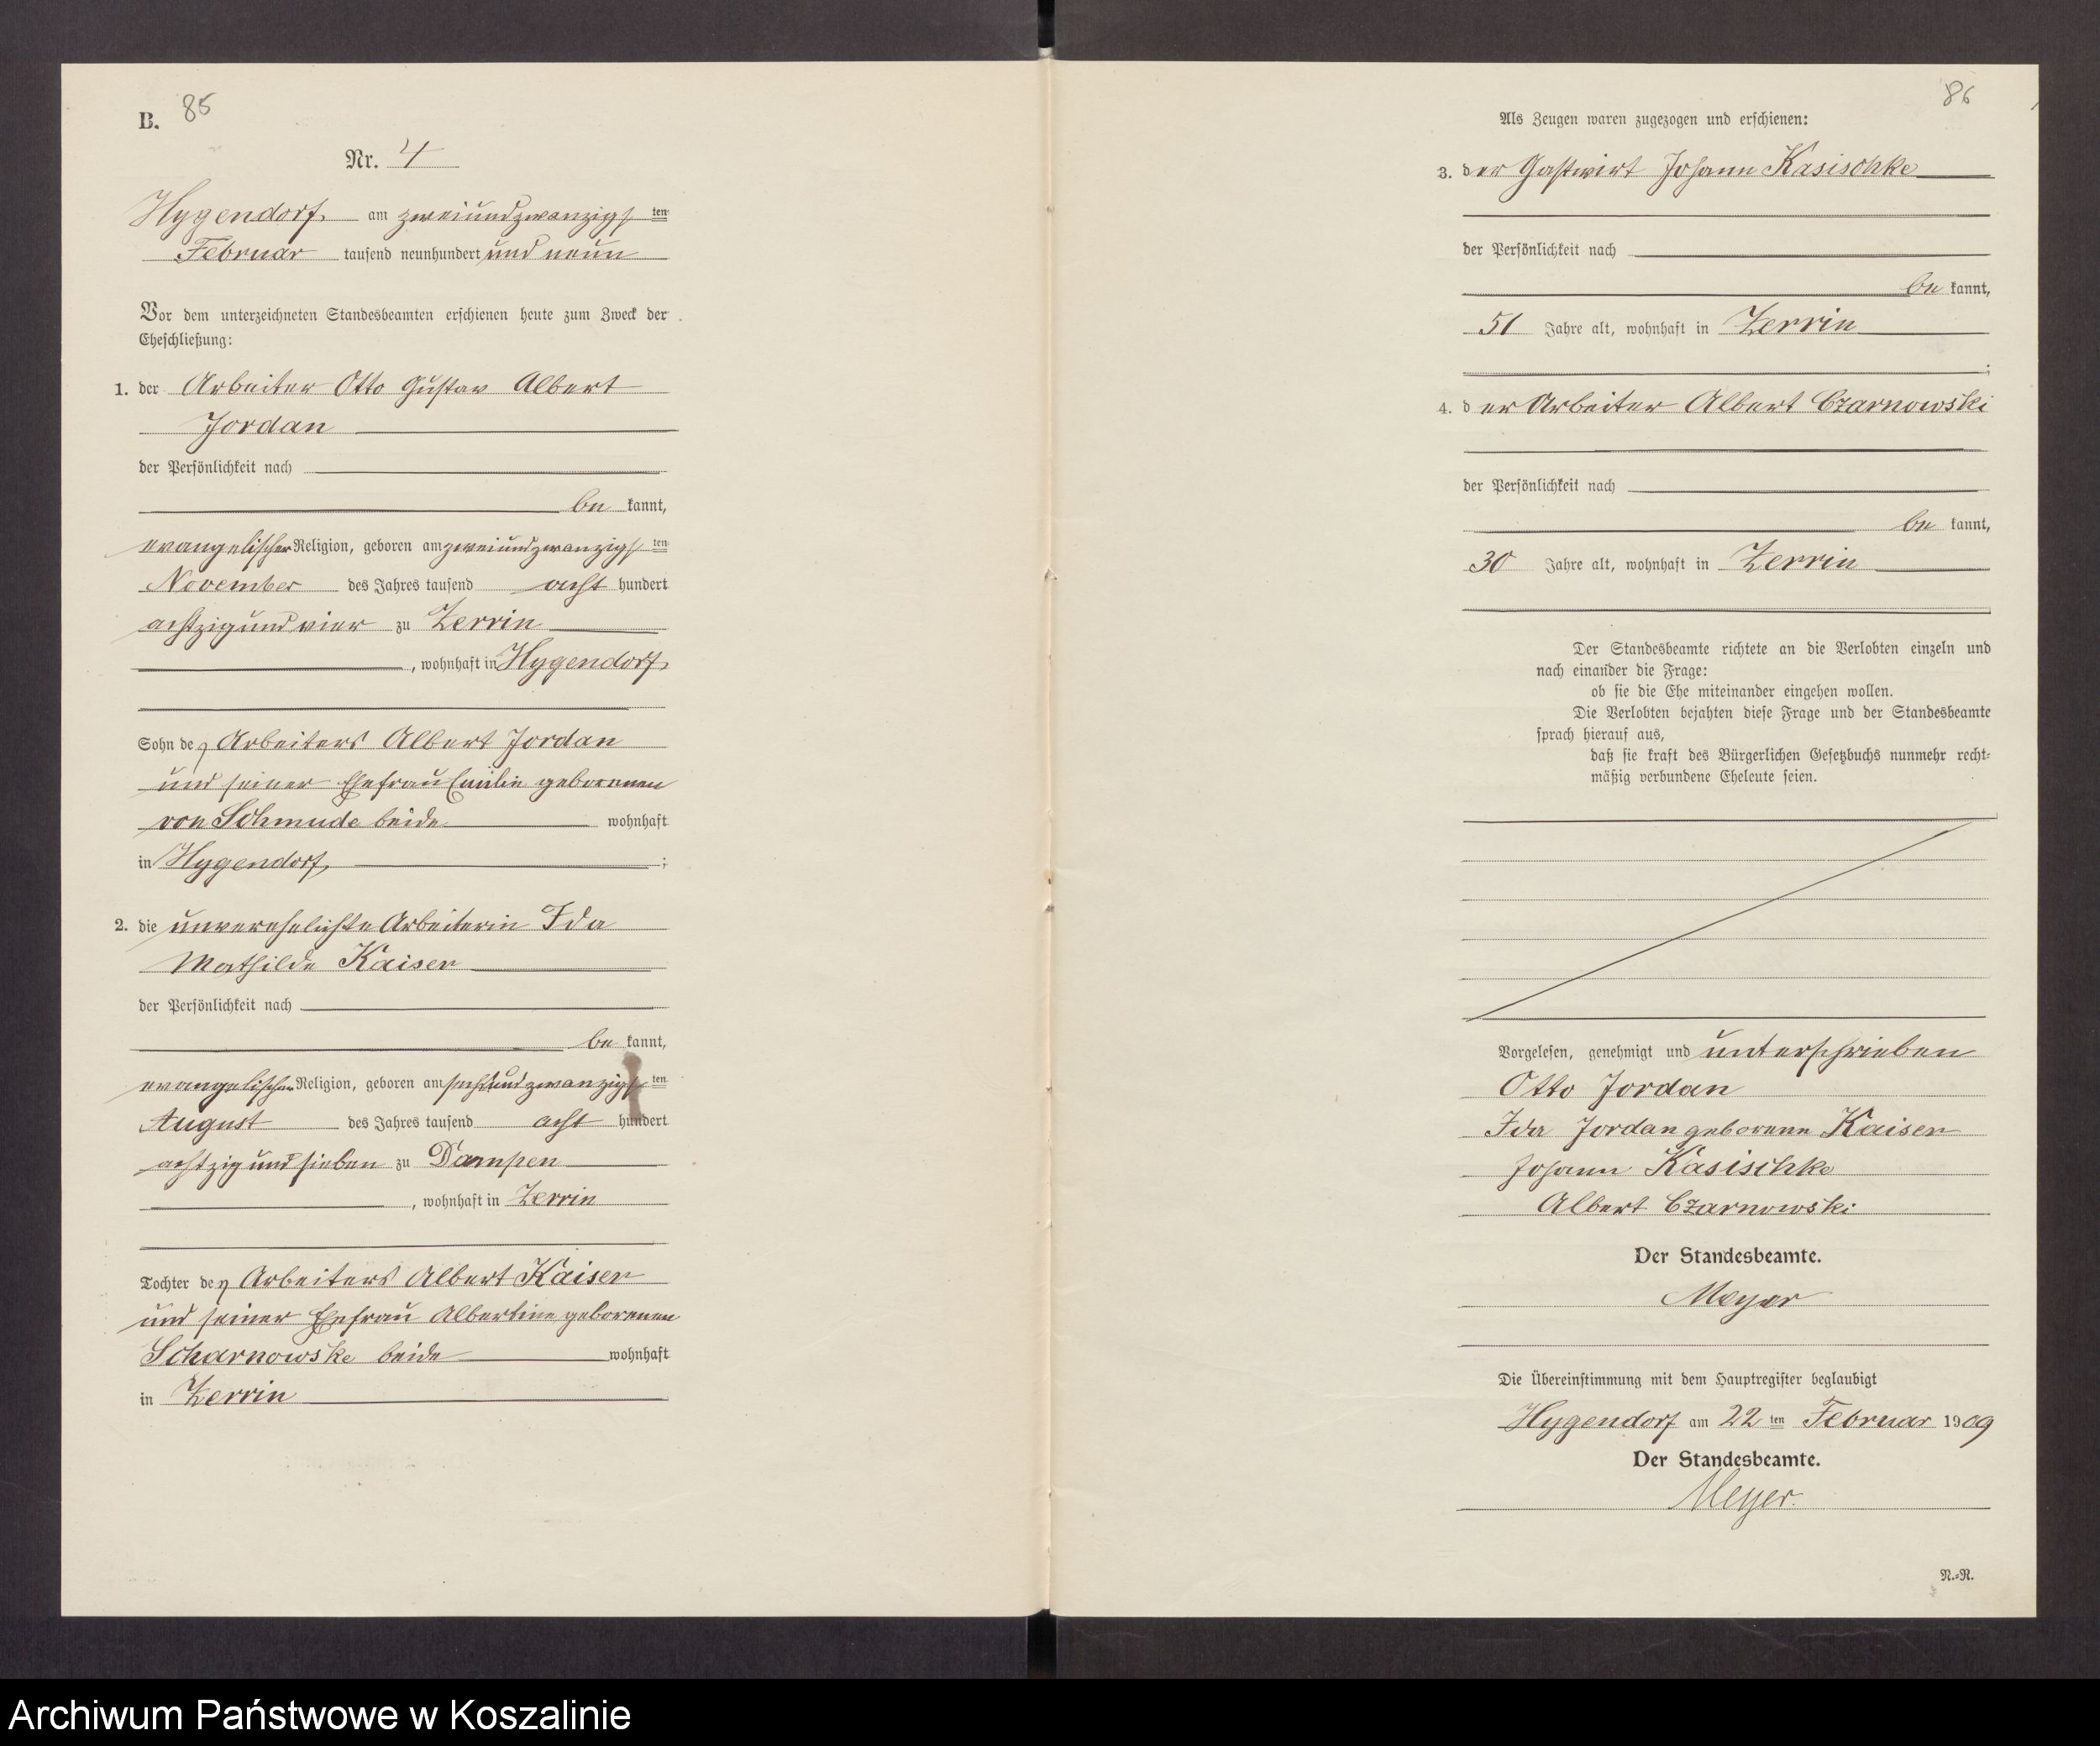 B. 85
Nr. 4
Hygendorf, am zweiundzwanzigsten
Februar tausend neunhundert und neun
Vor dem unterzeichneten Standesbeamten erschienen heute zum Zweck der
Eheschließung:
1. der Arbeiter Otto Gustav Albert
Jordan
der Persönlichkeit nach
be kannt,
evangelischer Religion, geboren am zweiundzwanzigsten
November des Jahres tausend acht hundert
achtzig und vier zu Zerrin
, wohnhaft in Hygendorf,
Sohn des Arbeiters Albert Jordan
und seiner Ehefrau Emilie geborenen
von Schmude beide wohnhaft
in Hygendorf, ;
2. die unverehelichte Arbeiterin Ida
Mathilde Kaiser
der Persönlichkeit nach
be kannt,
evangelischer Religion, geboren am sechsundzwanzigsten
August des Jahres tausend acht hundert
achtzig und sieben zu Dampen
, wohnhaft in Zerrin
Tochter des Arbeiters Albert Kaiser
und seiner Ehefrau Albertine geborenen
Scharnowske beide wohnhaft
in Zerrin
86
Als Zeugen waren zugezogen und erschienen:
3. der Gastwirt Johann Kasischke
der Persönlichkeit nach
be kannt,
51 Jahre alt, wohnhaft in Zerrin
;
4. der Arbeiter Albert Czarnowski
der Persönlichkeit nach
be kannt,
30 Jahre alt, wohnhaft in Zerrin
Der Standesbeamte richtete an die Verlobten einzeln und
nach einander die Frage:
ob sie die Ehe miteinander eingehen wollen.
Die Verlobten bejahten diese Frage und der Standesbeamte
sprach hierauf aus,
daß sie kraft des Bürgerlichen Gesetzbuchs nunmehr recht-
mäßig verbundene Eheleute seien.
Vorgelesen, genehmigt und unterschrieben
Otto Jordan
Ida Jordan geborene Kaiser
Johann Kasischke
Albert Czarnowski
Der Standesbeamte.
Meyer
Die Übereinstimmung mit dem Hauptregister beglaubigt
Hygendorf am 22 ten Februar 1909
Der Standesbeamte.
Meyer.
N.-R.
Archiwum Państwowe w Koszalinie